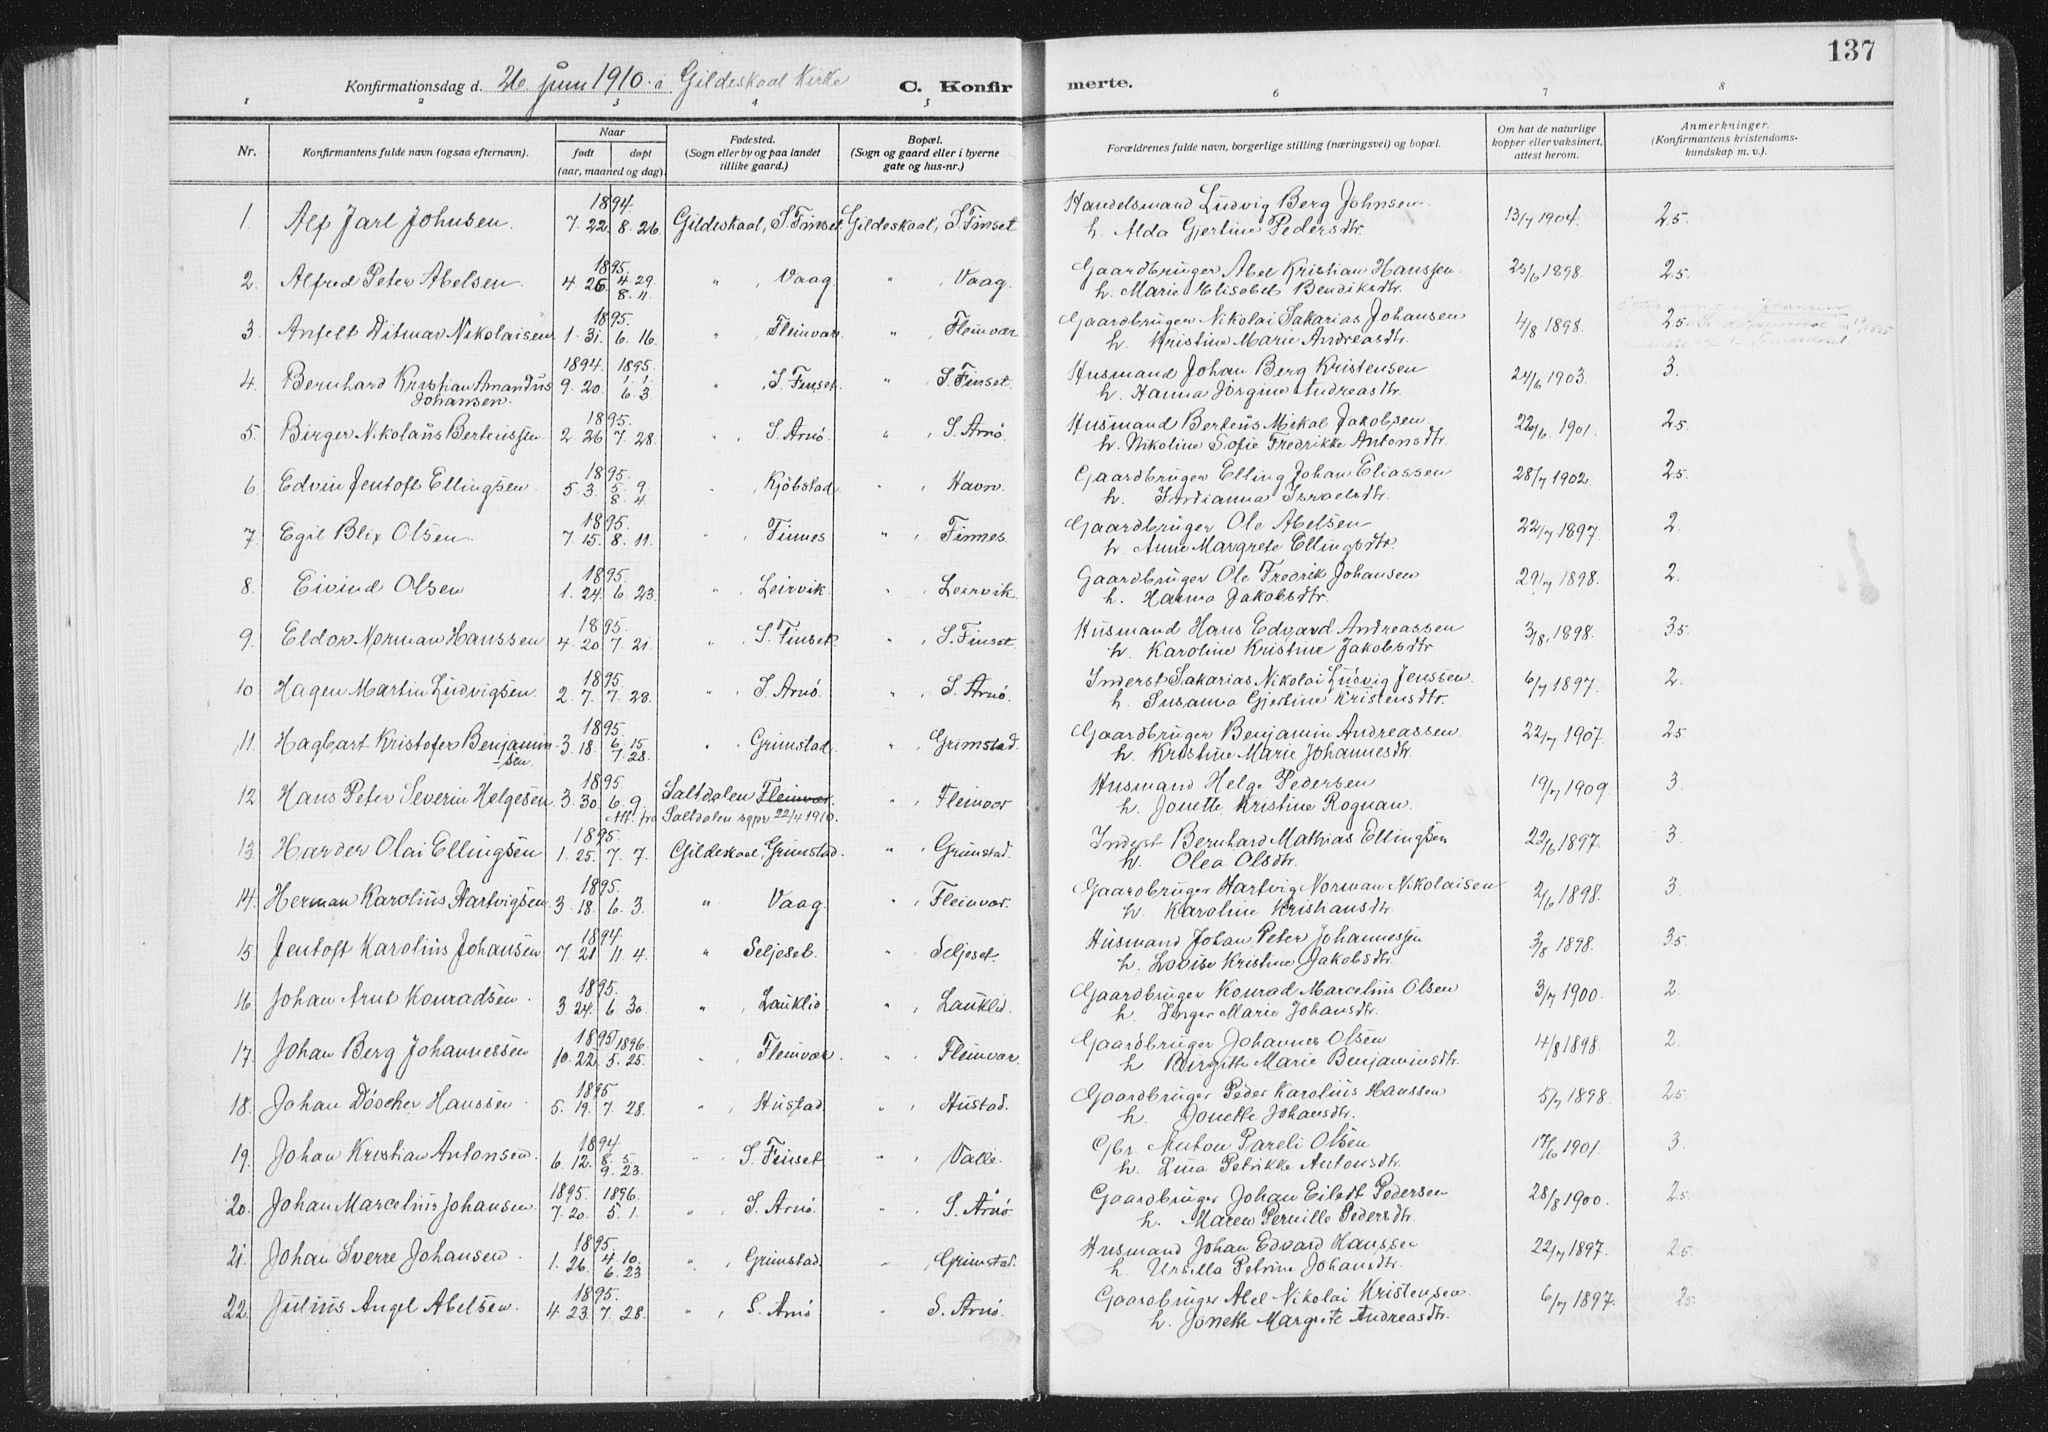 137
Konfirmationsdag d. 26 juni 1910. i Gildeskaal Kirke C. Konfirmerte.
1 2 3 4 5 6 7 8
Nr. Konfirmantens fulde navn (ogsaa efternavn). Naar født døpt (aar, maaned og dag). Fødested. (Sogn eller by og paa landet tillike gaard.) Bopæl. (Sogn og gaard eller i byerne gate og hus-nr.) Forældrenes fulde navn, borgerlige stilling (næringsvei) og bopæl. Om hat de naturlige kopper eller vaksinert, attest herom. Anmerkninger. (Konfirmantens kristendoms-kundskap m. v.).
1894.
1. Alf Jarl Johnsen. 7. 22. 8. 26. Gildeskaal, S. Finset. Gildeskaal, S. Finset Handelsmand Ludvig Berg Johnsen 13/7 1904. 2.5.
h. Alda Gjertine Pedersdtr.
1895.
2. Alfred Peter Abelsen. 4 26 4. 29. 8. 11. " , Vaag. " , Vaag. Gaardbruger Abel Kristian Hanssen. 25/6 1898. 2.5.
h. Marie Elisabet Bendiksdtr.
1895.
3. Anfelt Ditmar Nikolaisen 1. 31. 6. 16. " , Fleinvær. " Fleinvær Gaardbruger Nikolai Sakarias Johansen 4/8 1898. 2.5.
h. Kristine Marie Andreasdtr.
1894. 1895.
4. Bernhard Kristian Amandus Johansen. 9. 20. 1. 1. 6. 3 " , S. Finset. " S. Finset. Husmand Johan Berg Kristensen 24/6 1903. 3.
h. Hanna Jørgine Andreasdtr.
1895.
5. Birger Nikolaus Bertenssen. 2 26 7. 28. " , S. Arnø. " , S. Arnø. Husmand Bertens Mikal Jakobsen 22/6. 1901. 2.5
h. Nikoline Sofie Fredrikke Antonsdtr.
1895.
6. Edvin Jentoft Ellingsen. 5. 3. 5. 9 8. 4. " , Kjøbstad " , Havn. Gaardbruger Elling Johan Eliassen 28/7 1902. 2.5.
h. Indianna Israelsdtr.
1895.
7. Egil Blix Olsen. 7. 15. 8. 11. " , Finnes " , Finnes. Gaardbruger Ole Abelsen 22/7 1897. 2.
h. Anne Margrete Ellingsdtr.
1895.
8. Eivind Olsen 1. 24. 6. 23. " , Leirvik. " , Leirvik. Gaardbruger Ole Fredrik Johansen 29/7 1898. 2.
h. Hanna Jakobsdtr.
1895.
9. Eldor Norman Hanssen 4. 20. 7. 21. " . S. Finset. " , S. Finset. Husmand Hans Edvard Andreassen 3/8 1898. 3.5
h. Karoline Kristine Jakobsdtr.
1895.
10 Hagen Martin Ludvigsen. 2. 7. 7. 28. " , S. Arnø. " , S. Arnø. Inderst Sakarias Nikolai Ludvig Jenssen. 6/7 1897. 2.
h. Susanna Gjertine Kristensdtr.
1895.
11. Hagbart Kristofer Benjaminsen. 3. 18. 6. 15 7. 28. " , Grimstad. " , Grimstad. Gaardbruger Benjamin Andreassen. 22/7 1907. 2.5
h. Kristine Marie Johannesdtr.
1895
12 Hans Peter Severin Helgesen 3. 30. 6. 9. Saltdalen Fleinvær. " , Fleinvær Husmand Helge Pedersen 19/7 1909 3.
Att. fra Saltdalen sgpr 22/4 1910. h. Jonette Kristine Rognan.
1895.
13. Harder Olai Ellingsen 1. 25. 7. 7. Gildeskaal, Grimstad. " , Grimstad. Inderst Bernhard Mathias Ellingsen 22/6 1897. 3.
h. Olea Olsdtr.
1895.
14. Herman Karolius Hartvigsen 3. 18. 6. 3. " Vaag. " , Fleinvær. Gaardbruger Hartvig Norman Nikolaisen 2/6 1898. 3.
h. Karoline Kristiansdtr.
1894
15 Jentoft Karolius Johansen 7 21 11. 4. " Seljeset. " , Seljeset. Husmand Johan Peter Johannessen 3/8 1898. 3.5
h. Lovise Kristine Jakobsdtr.
1895.
16 Johan Arnt Konradsen. 3. 24. 6. 30. " , Lauklid " , Lauklid. Gaardbruger Konrad Marcelius Olsen 3/7 1900. 2.
h. Inger Marie Johansdtr.
1895 1896.
17. Johan Berg Johannessen 10. 22. 5. 25. " , Fleinvær. " , Fleinvær. Gaardbruger Johannes Olsen 4/8 1898. 2.
h. Birgitte Marie Benjaminsdtr.
1895
18. Johan Döscher Hanssen. 5. 19. 7. 28. " , Hustad. " , Hustad. Gaardbruger Peder Karolius Hanssen 5/7 1898. 2.5.
h. Jonette Johansdtr.
1894
19. Johan Kristian Antonsen. 6. 12. 8. 5. 9. 23. " , S. Finset " , Valle. Gbr. Anton Pareli Olsen 17/6 1901. 3.
h. Lina Petrikke Antonsdtr.
1895. 1896.
20. Johan Marcelius Johansen. 7. 20. 5. 1. " , S. Arnø. " , S. Arnø. Gaardbruger Johan Eilert Pedersen 28/8 1900. 2.5.
h. Maren Pernille Pedersdtr.
1895
21. Johan Sverre Johansen. 1. 26. 4. 10. 6. 23 " , Grimstad. " , Grimstad. Husmand Johan Edvard Hanssen 22/7 1897. 2.5.
h. Ursilla Petrine Johansdtr.
1895.
22. Julius Angel Abelsen. 4. 23. 7. 28. " , S. Arnø " S. Arnø. Gaardbruger Abel Nikolai Kristensen. 6/7 1897. 2.5.
h. Jonette Margrete Andreasdtr.